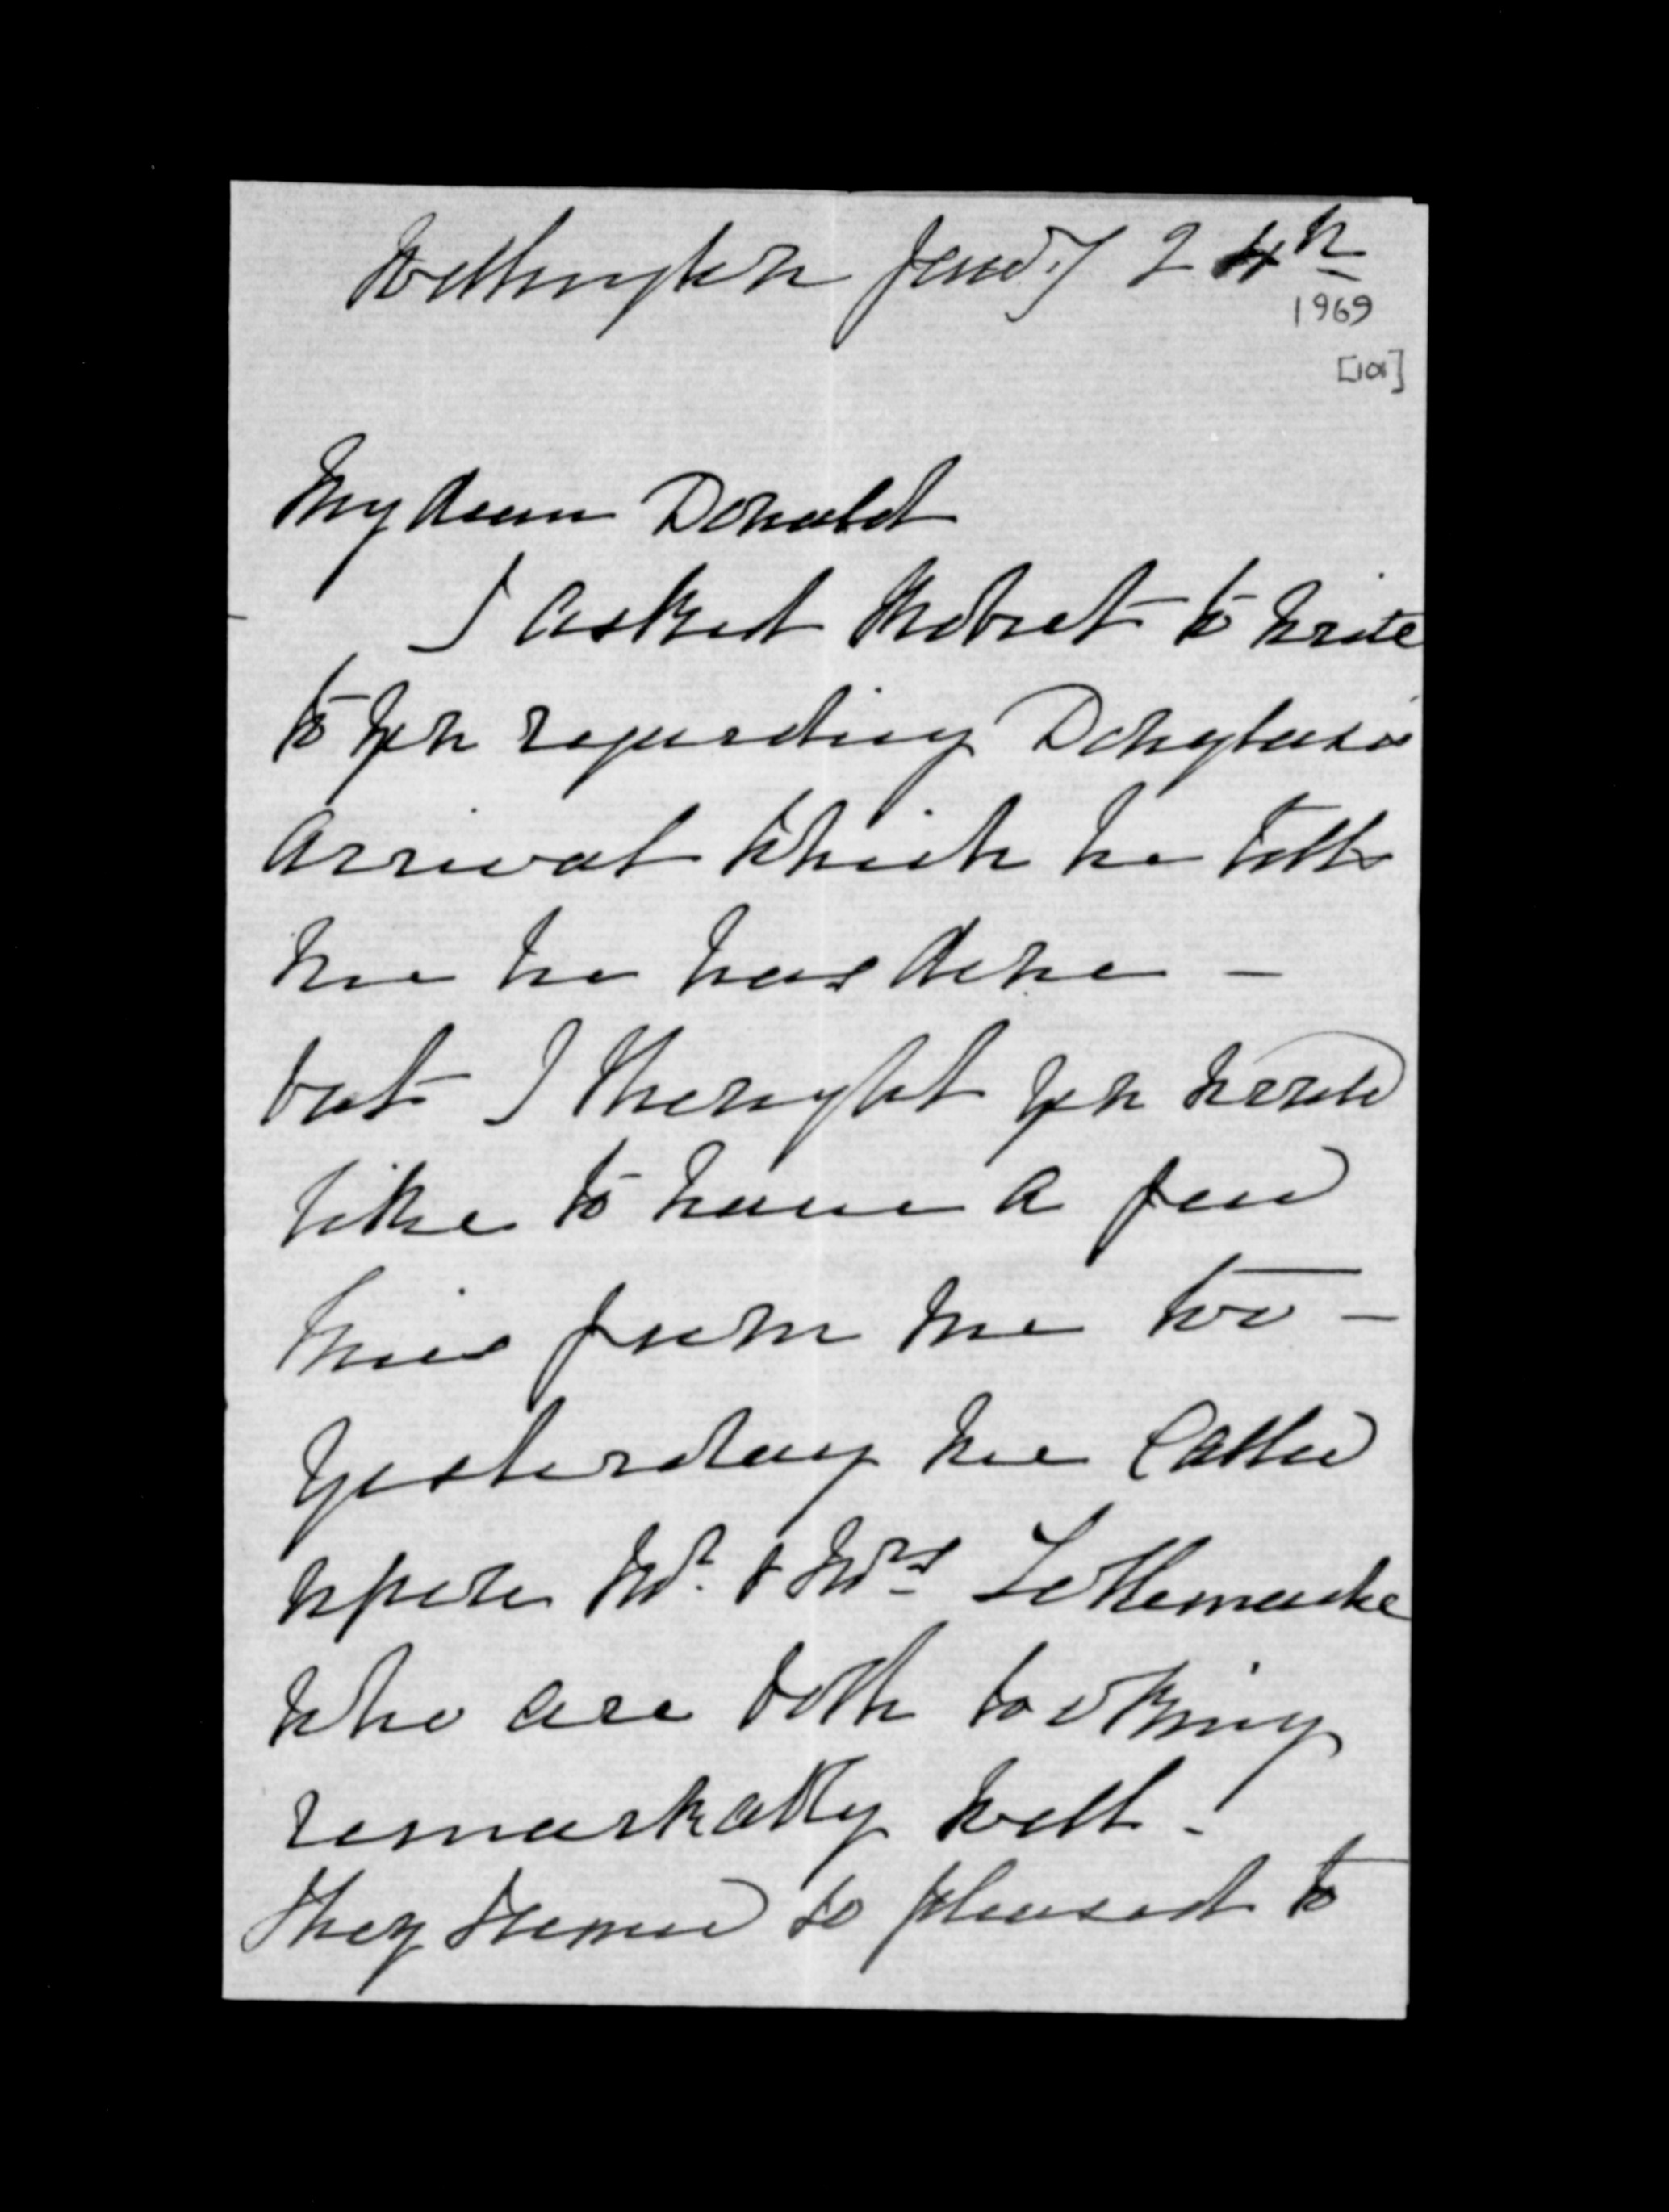 Wellington Jan'y 24th
1969
[101]
My dear Donald
I asked Robert to write
to you regarding Douglas's
arrival which he tells
me he has done -
but I thought you would
like to have a few
lines from me too -
Yesterday we called
upon Mr. & Mrs
who are both looking
remarkably well -
They seemed so pleased to